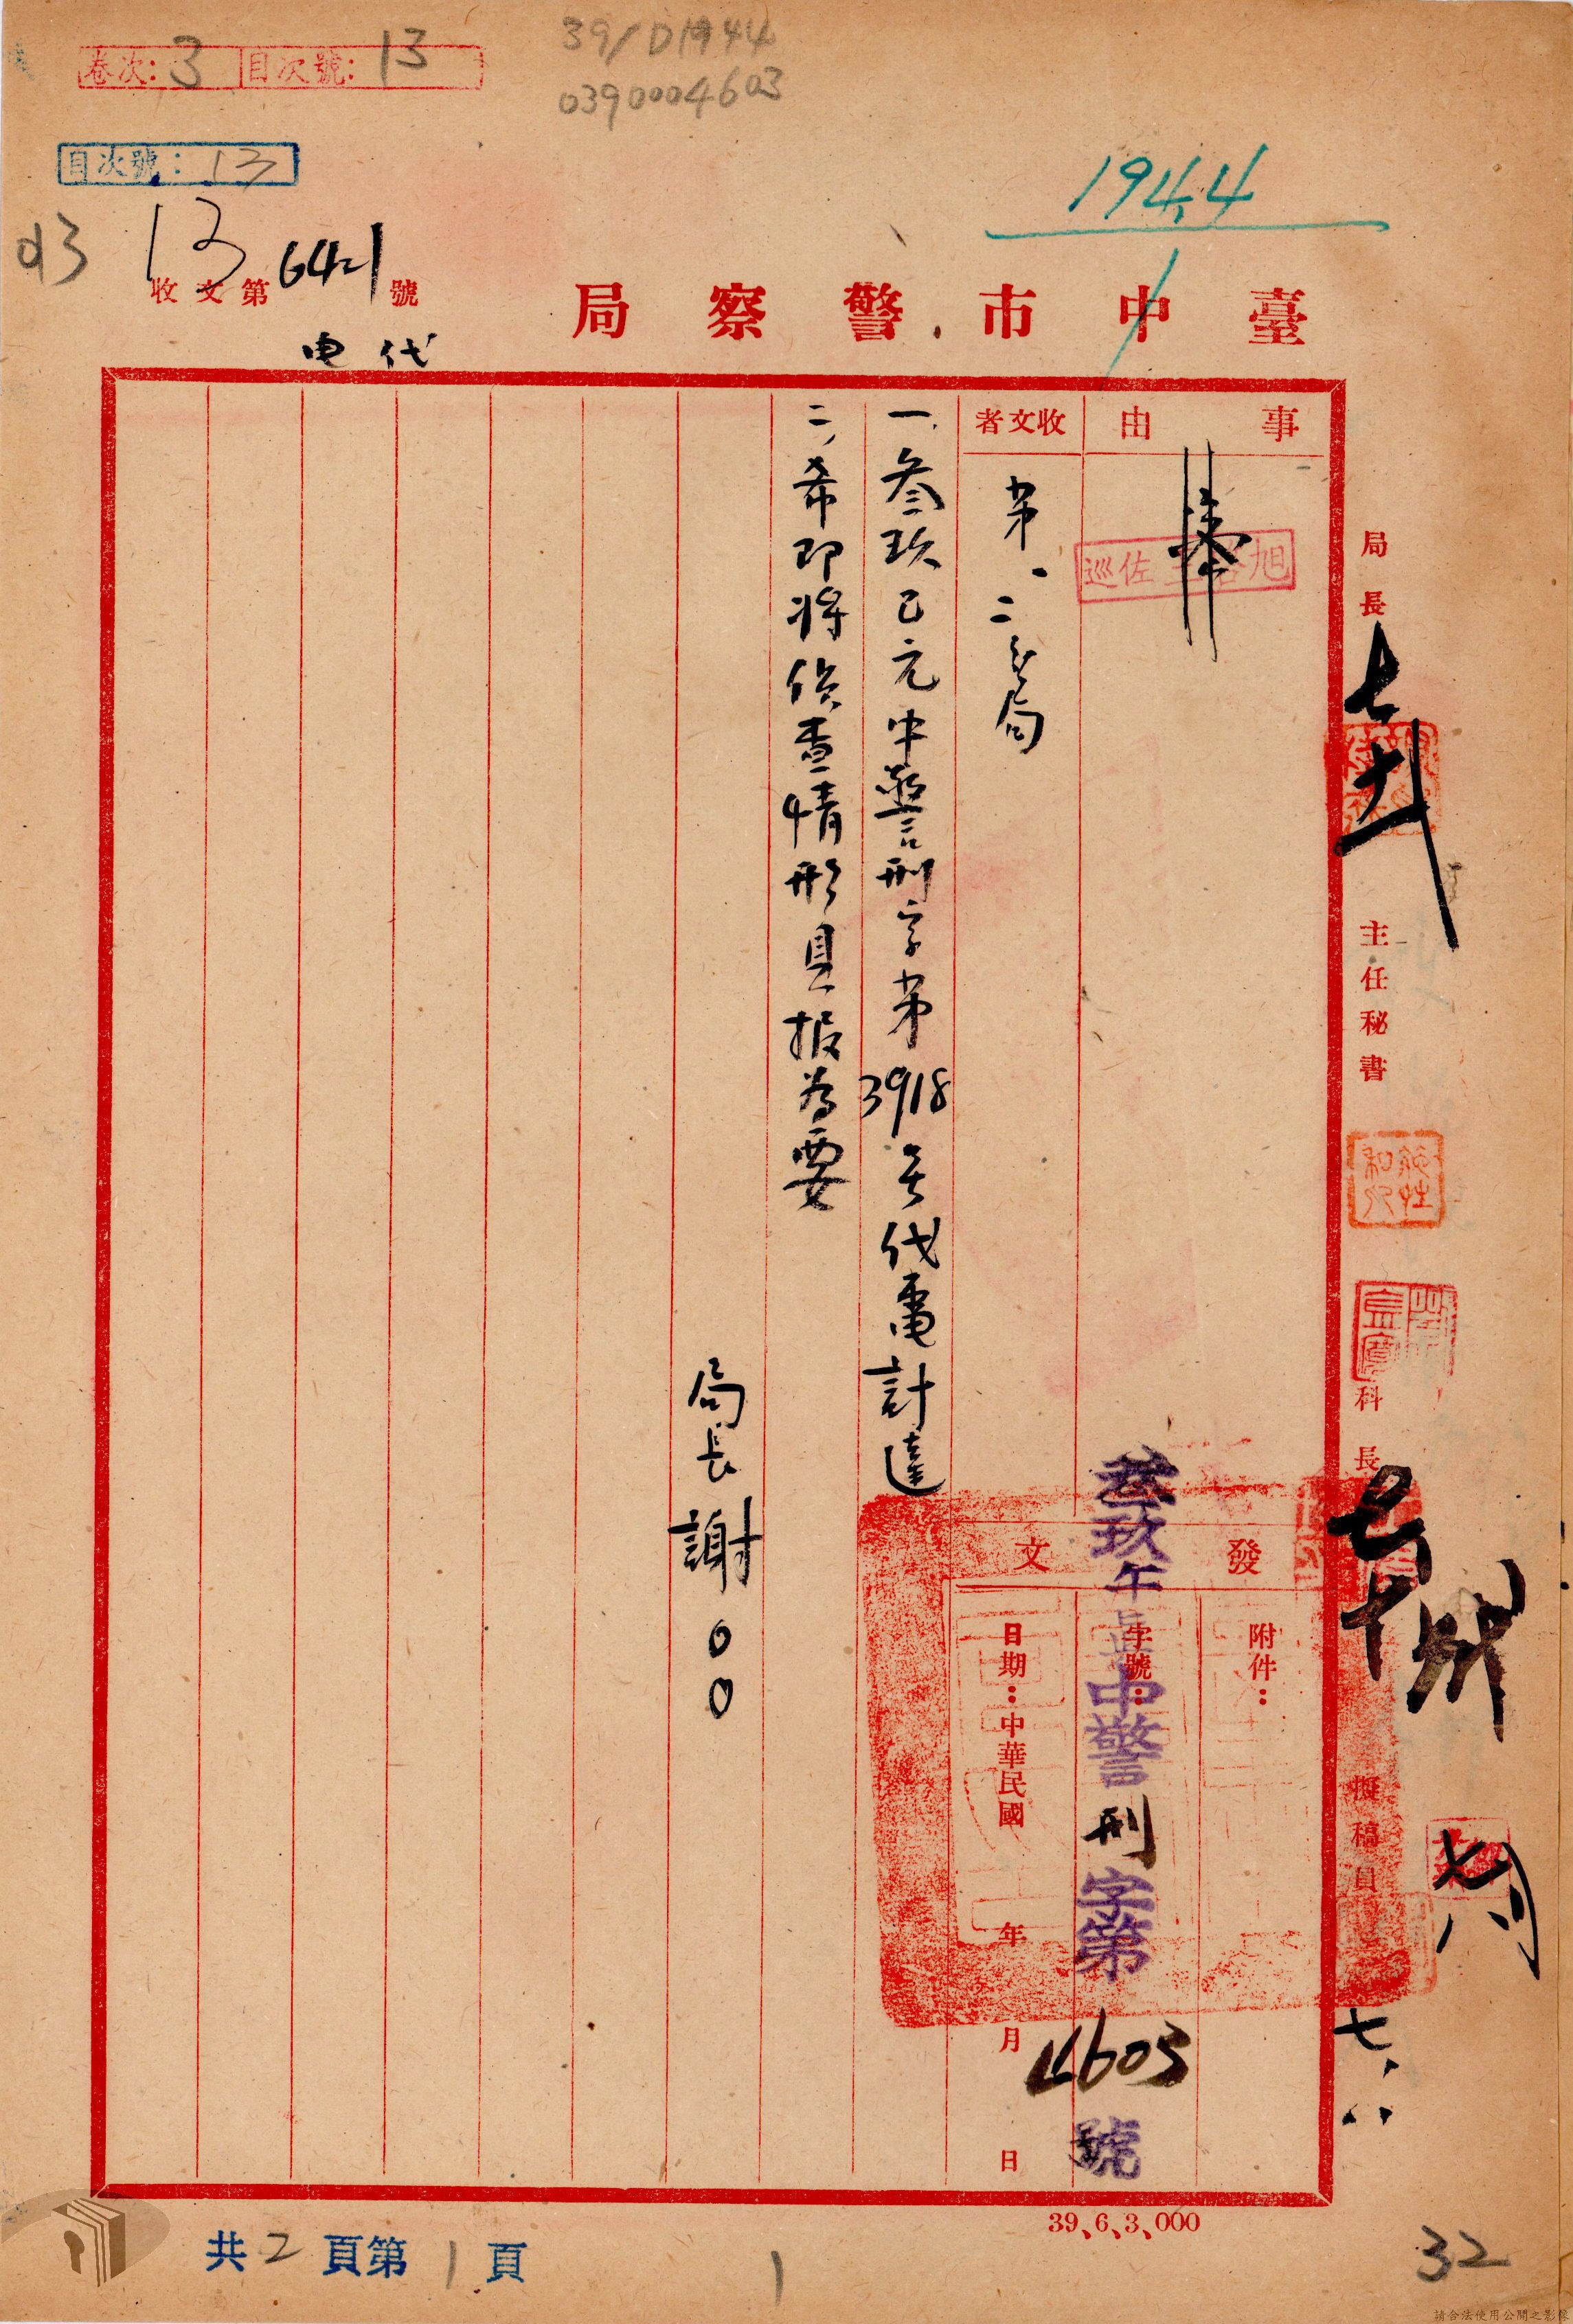 卷次：3 目次號：13
39/D1944
0390004603
目次號：13
1944
13
收文第6421號
局察警市中臺
電代
事由
收文者
第一、二分局
一、叁玖巳元中警刑字第3918號代電計達
二、希即將偵查情形具报為要
局長謝〇〇
發文
附件：
字號：
叁玖午 中警刑字第4603號
日期：中華民國 年 月 日
局長
主任秘書
科長
擬稿員
七、八
39、6、3、000
共2頁第1頁
1
32
請合法使用公開之影像